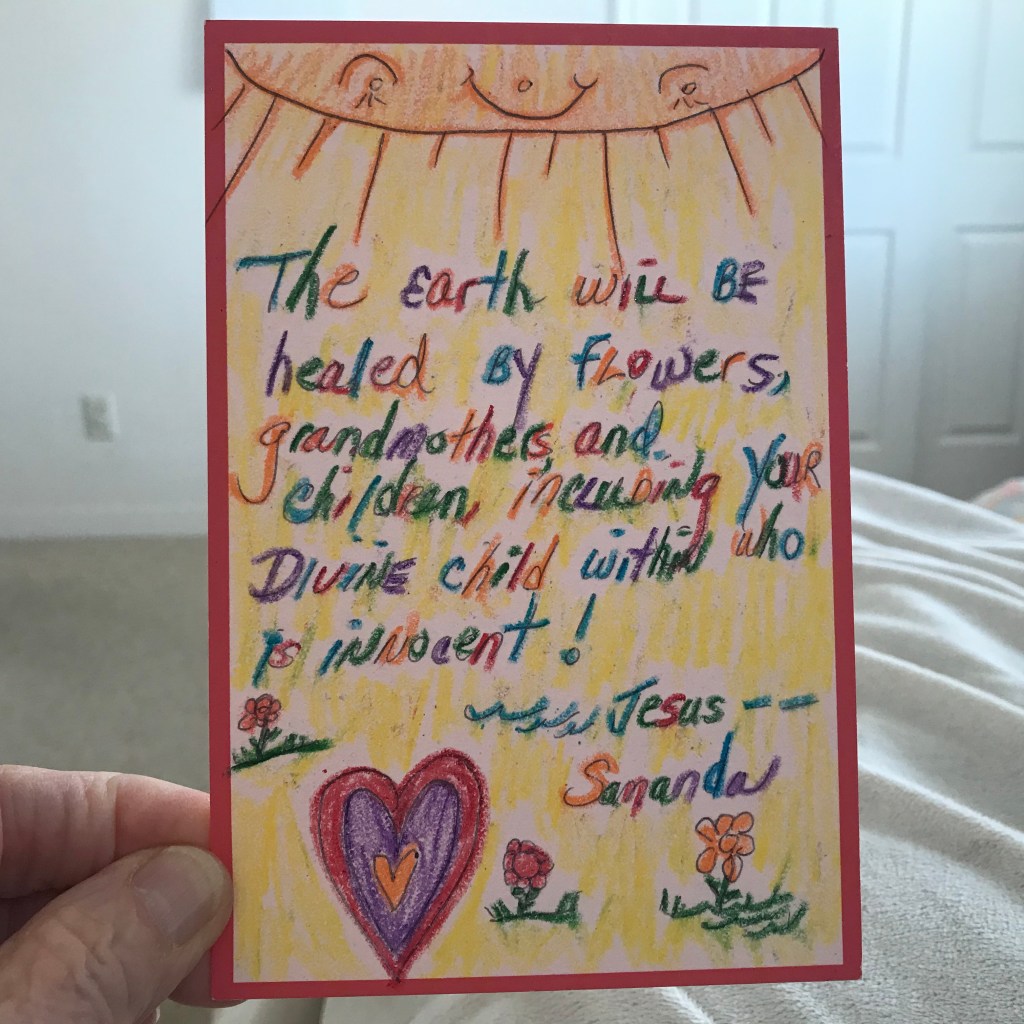 The Earth will BE
healed By flowers,
grandmothers, and
children, incluDing YOUR
DIVINE child within who
is innocent!
Jesus --
Sananda